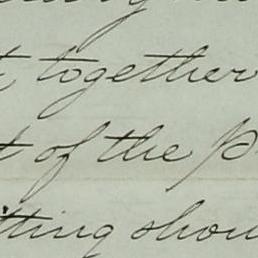 together
of the P
tting show